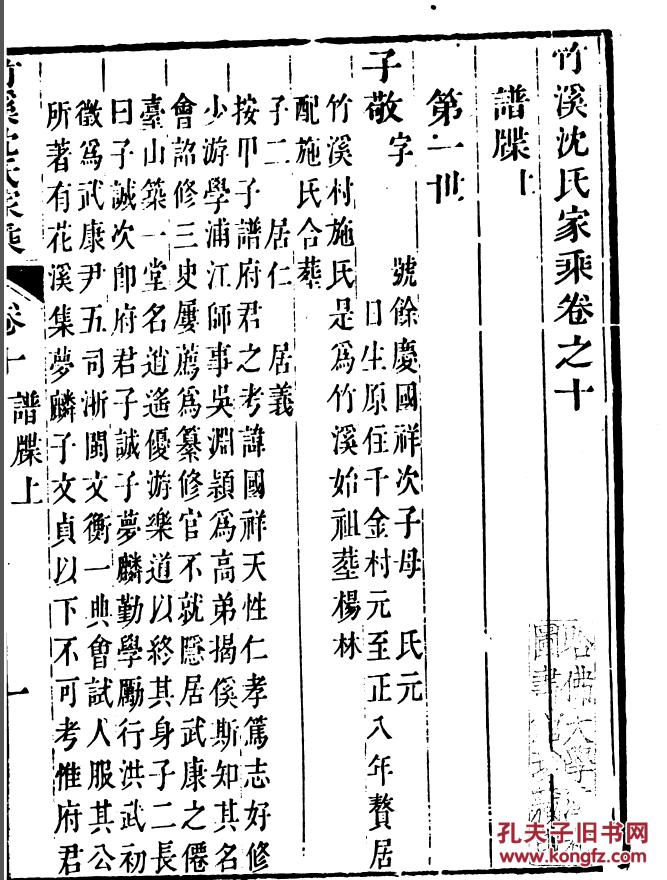 竹溪沈氏家乘卷之十
譜牒上
第一世
子敬字　　號餘慶國祥次子母　氏元
　日生原住千金村元至正八年贅居
竹溪村施氏是爲竹溪始祖塟楊林
配施氏合塟
子二　居仁　居義
按甲子譜府君之考諱國祥天性仁孝篤志好修
少游學浦江師事吳淵頴爲高弟揭傒斯知其名
會詔修三史屢薦爲纂修官不就隱居武康之僊
臺山築一堂名逍遙優游樂道以終其身子二長
曰子誠次卽府君子誠子夢麟勤學勵行洪武初
徵爲武康尹五司浙闈文衡一典會試人服其公
所著有花溪集夢麟子文貞以下不可考惟府君
竹溪沈氏家乘　卷十　譜牒上　一
哈佛大學
圖書
孔夫子旧书网
www.kongfz.com